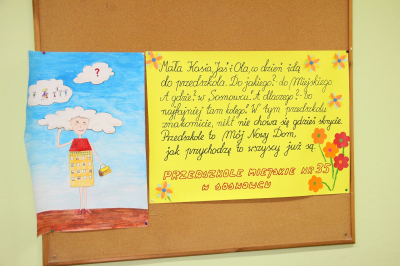 ?
Mała Kasia, Jaś i Ola, co dzień idą
do przedszkola. Do jakiego? do Miejskiego.
A gdzie? w Sosnowcu. A dlaczego? bo
najfajniej tam kolego! W tym przedszkolu
znakomicie, nikt nie chowa się gdzieś skrycie.
Przedszkole to Mój Nowy Dom,
jak przychodzę to wszyscy już są.
PRZEDSZKOLE MIEJSKIE NR 35
W SOSNOWCU